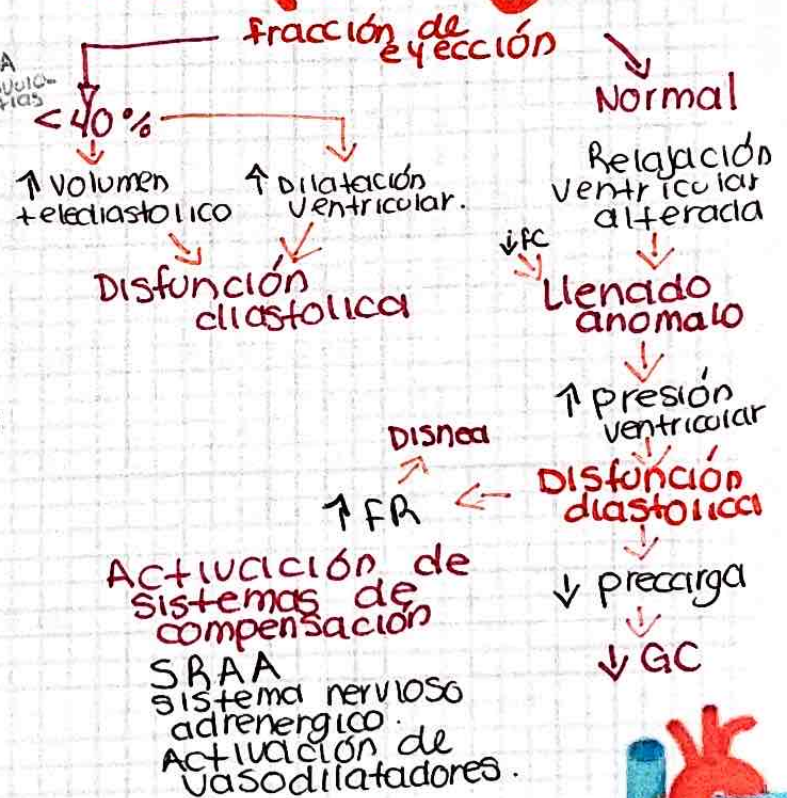 fracción de
eyección
<40%
↑ volumen
telediastolico
↑ Dilatación
ventricular.
Disfunción
diastolica
Normal
Relajación
ventricular
alterada
↓FC
Llenado
anomalo
↑ presión
ventricular
Disfunción
diastolica
Disnea
↑ FR
↓ precarga
↓ GC
Activación de
sistemas de
compensación
SRAA
sistema nervioso
adrenergico.
Activación de
vasodilatadores.